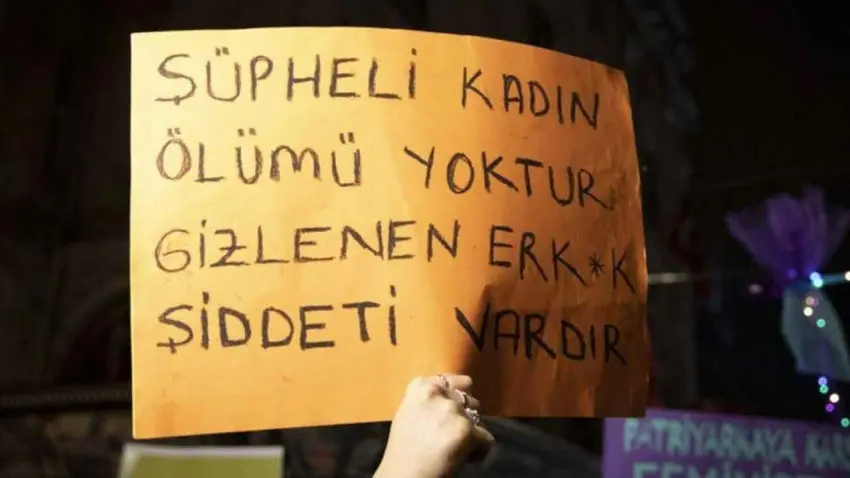 ŞÜPHELİ KADIN
ÖLÜMÜ YOKTUR.
GİZLENEN ERK*K
ŞİDDETİ VARDIR
PATRİYARKAYA KARŞ
FEMİNİST